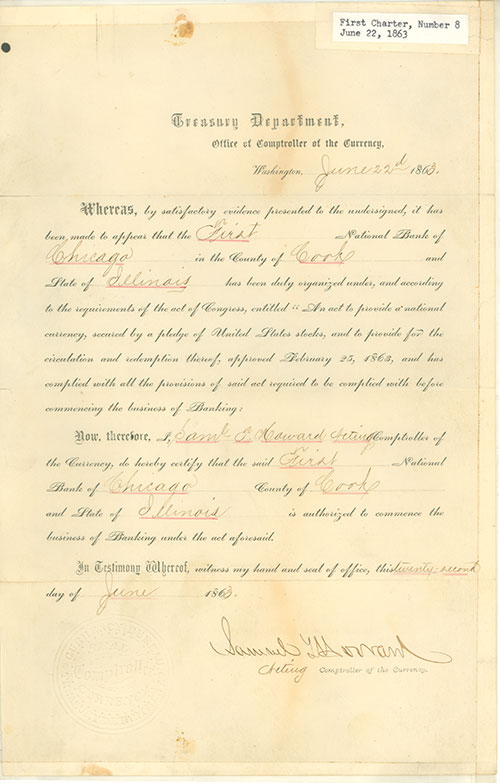 First Charter, Number 8
June 22, 1863
Treasury Department,
Office of Comptroller of the Currency,
Washington, June 22d 1863.
Whereas, by satisfactory evidence presented to the undersigned, it has
been made to appear that the First National Bank of
Chicago in the County of Cook and
State of Illinois has been duly organized under, and according
to the requirements of the act of Congress, entitled "An act to provide a national
currency, secured by a pledge of United States stocks, and to provide for the
circulation and redemption thereof, approved February 25, 1863, and has
complied with all the provisions of said act required to be complied with before
commencing the business of Banking:
Now, therefore, I, Saml T. Howard Acting Comptroller of
the Currency, do hereby certify that the said First National
Bank of Chicago County of Cook
and State of Illinois is authorized to commence the
business of Banking under the act aforesaid.
In Testimony Whereof, witness my hand and seal of office, this twenty-second
day of June 1863.
Samuel T. Howard
Acting Comptroller of the Currency.